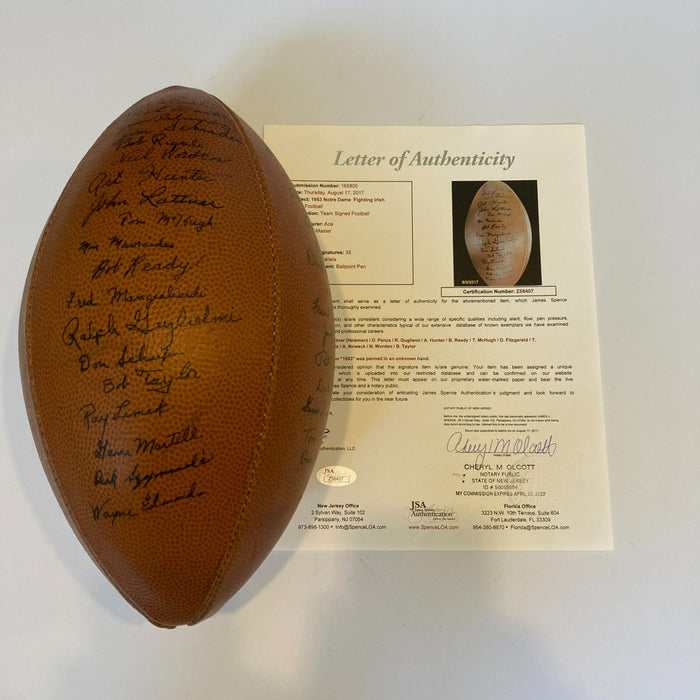 Bob Rigali
Art Hunter
John Lattner
Tom McHugh
Bob Ready
Fred Mangialardi
Ralph Guglielmi
Don Schaefer
Bob Taylor
Ray Lemek
Gene Martell
Dick Szymanski
Wayne Edmonds
JSA
Z56407
Letter of Authenticity
Submission Number: 165805
Thursday, August 17, 2017
1953 Notre Dame Fighting Irish
Football
Team Signed Football
Ace
-Master
signatures: 35
Ballpoint Pen
8/9/2017
Certification Number: Z56407
ment shall serve as a letter of authenticity for the aforementioned item, which James Spence
thoroughly examined.
is/are consistent considering a wide range of specific qualities including slant, flow, pen pressure,
and other characteristics typical of our extensive database of known exemplars we have examined
professional careers
(Heisman) / D. Penza / R. Guglielmi / A. Hunter / B. Ready / T. McHugh / D. Fitzgerald / T.
/ A. Nowack / N. Worden / B. Taylor
"1953" was penned in an unknown hand.
considered opinion that the signature item is/are genuine. Your item has been assigned a unique
which is uploaded into our restricted database and can be confirmed on our website
at any time. This letter must appear on our proprietary water-marked paper and bear the live
Spence and notary public.
ate your consideration of entrusting James Spence Authentication's judgment and look forward to
collectibles for you in the near future.
NOTARY PUBLIC OF NEW JERSEY
Cheryl M Olcott
Notary Public
CHERYL M OLCOTT
NOTARY PUBLIC
STATE OF NEW JERSEY
MY COMMISSION EXPIRES APRIL 2022
uthentication, LLC
JSA
Z56407
New Jersey Office
2 Sylvan Way, Suite 102
Parsippany, NJ 07054
973-898-1300 • Info@SpenceLOA.com
JSA
James Spence
Authentication
www.SpenceLOA.com
Florida Office
3223 N.W. 10th Terrace, Suite 604
Fort Lauderdale, FL 33309
954-380-8670 • Florida@SpenceLOA.com